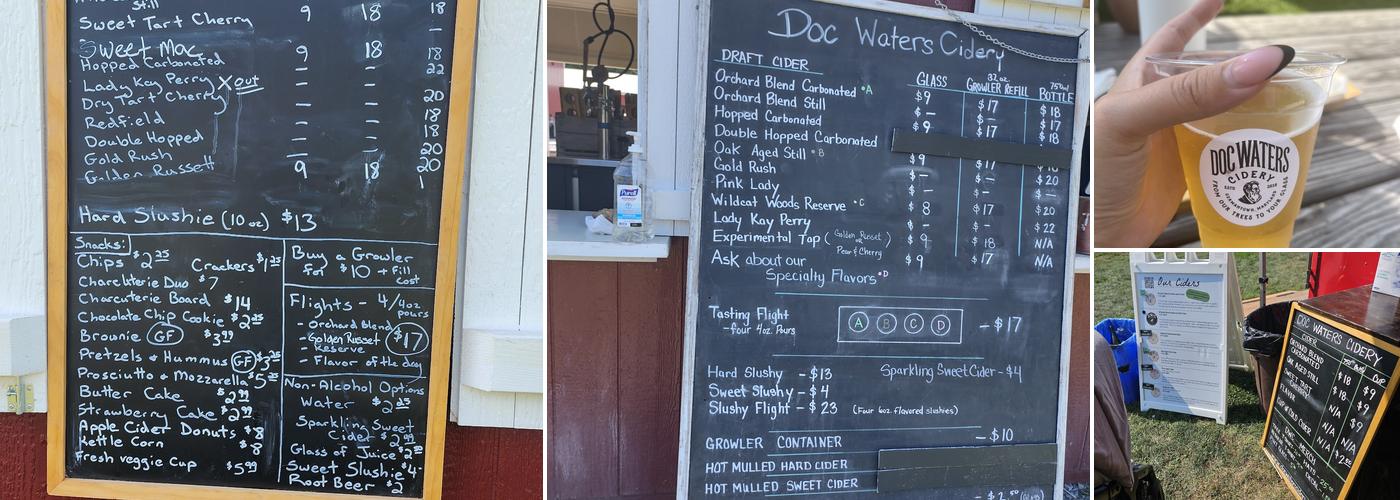 Still
Sweet Tart Cherry 9 18 18
Sweet Mac — — —
Hopped Carbonated 9 18 18
Lady Kay Perry X out — — 22
Dry Tart Cherry — —
Redfield — — 20
Double Hopped — — 18
Gold Rush — — 18
Golden Russett 9 18 20
Hard Slushie (10 oz) $13
Snacks:
Chips $2.25
Crackers $1.25
Charcuterie Duo $7
Charcuterie Board $14
Chocolate Chip Cookie $2.25
Brownie GF $3.99
Pretzels & Hummus GF
Prosciutto & Mozzarella
Butter Cake $2.99
Strawberry Cake $2.99
Apple Cider Donuts $8
Kettle Corn $8
Fresh veggie Cup $5.99
Buy a Growler
for $10 + fill
cost
Flights - 4/4oz
pours
- Orchard blend
- Golden Russet
- Reserve
- Flavor of the day
$17
Non-Alcohol Options
Water $2.25
Sparkling Sweet
Cider $2.99
Glass of Juice
Sweet Slushie $4
Root Beer $2
Doc Waters Cidery
DRAFT CIDER GLASS 32 oz. GROWLER REFILL 750ml BOTTLE
Orchard Blend Carbonated •A $9 $17 $18
Orchard Blend Still $— $— $17
Hopped Carbonated $9 $17 $18
Double Hopped Carbonated
Oak Aged Still •B $9 $17 $18
Gold Rush $— $— $20
Pink Lady $— $—
Wildcat Woods Reserve •C $8 $17 $20
Lady Kay Perry $— $— $22
Experimental Tap (Golden Russet or Pear & Cherry) $9 $18 N/A
Ask about our $9 $17 N/A
Specialty Flavors •D
Tasting Flight A B C D - $17
- four 4oz. Pours
Hard Slushy - $13 Sparkling Sweet Cider - $4
Sweet Slushy - $4
Slushy Flight - $23 (Four 6oz. flavored slushies)
GROWLER CONTAINER - $10
HOT MULLED HARD CIDER
HOT MULLED SWEET CIDER
PURELL
DOC WATERS
CIDERY
ESTD 2018
GERMANTOWN, MARYLAND
FROM OUR TREES TO YOUR GLASS
Our Ciders
DOC WATERS CIDERY
CIDER 750ml CUP
ORCHARD BLEND
CARBONATED $18 $9
OAK AGED STILL
SWEET TART
FLAVOR
CUP OF COLD CIDER N/A